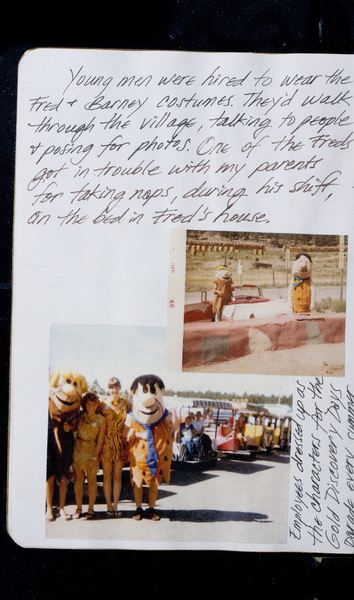 Young men were hired to wear the
Fred + Barney costumes. They'd walk
through the village, talking to people
+ posing for photos. One of the Freds
got in trouble with my parents
for taking naps, during his shift,
on the bed in Fred's house.
Employees dressed up as
the characters for the
Gold Discovery Days
parade every summer